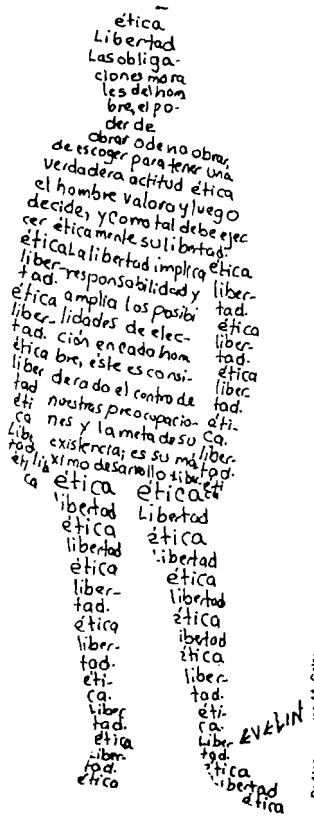 ética
Libertad
Las obliga-
ciones mora
les del hom
bre, el po-
der de
obrar o de no obrar,
de escoger para tener una
verdadera actitud ética
el hombre valora y luego
decide, y como tal debe ejer
cer éticamente su libertad.
ética La libertad implica ética
liber- responsabilidad y liber-
tad. amplía los posibi tad.
ética lidades de elec- ética
liber- ción en cada hom liber-
tad. bre, éste es consi- tad.
ética derado el centro de ética
liber nuestras preocupacio- liber
tad nes y la meta de su tad.
éti existencia; es su má éti-
ca ximo desarrollo ca.
Libe liber-
tad. tad.
éti lib liber éti
ca ca
ética ética
libertad Libertad
ética ética
libertad libertad
ética ética
liber- libertad
tad. ética
ética ibertad
liber- ética
tad. liber-
éti- tad.
ca. éti-
liber ca.
tad. liber
ética tad.
liber- ética
tad. libertad
ética ética
EVELIN